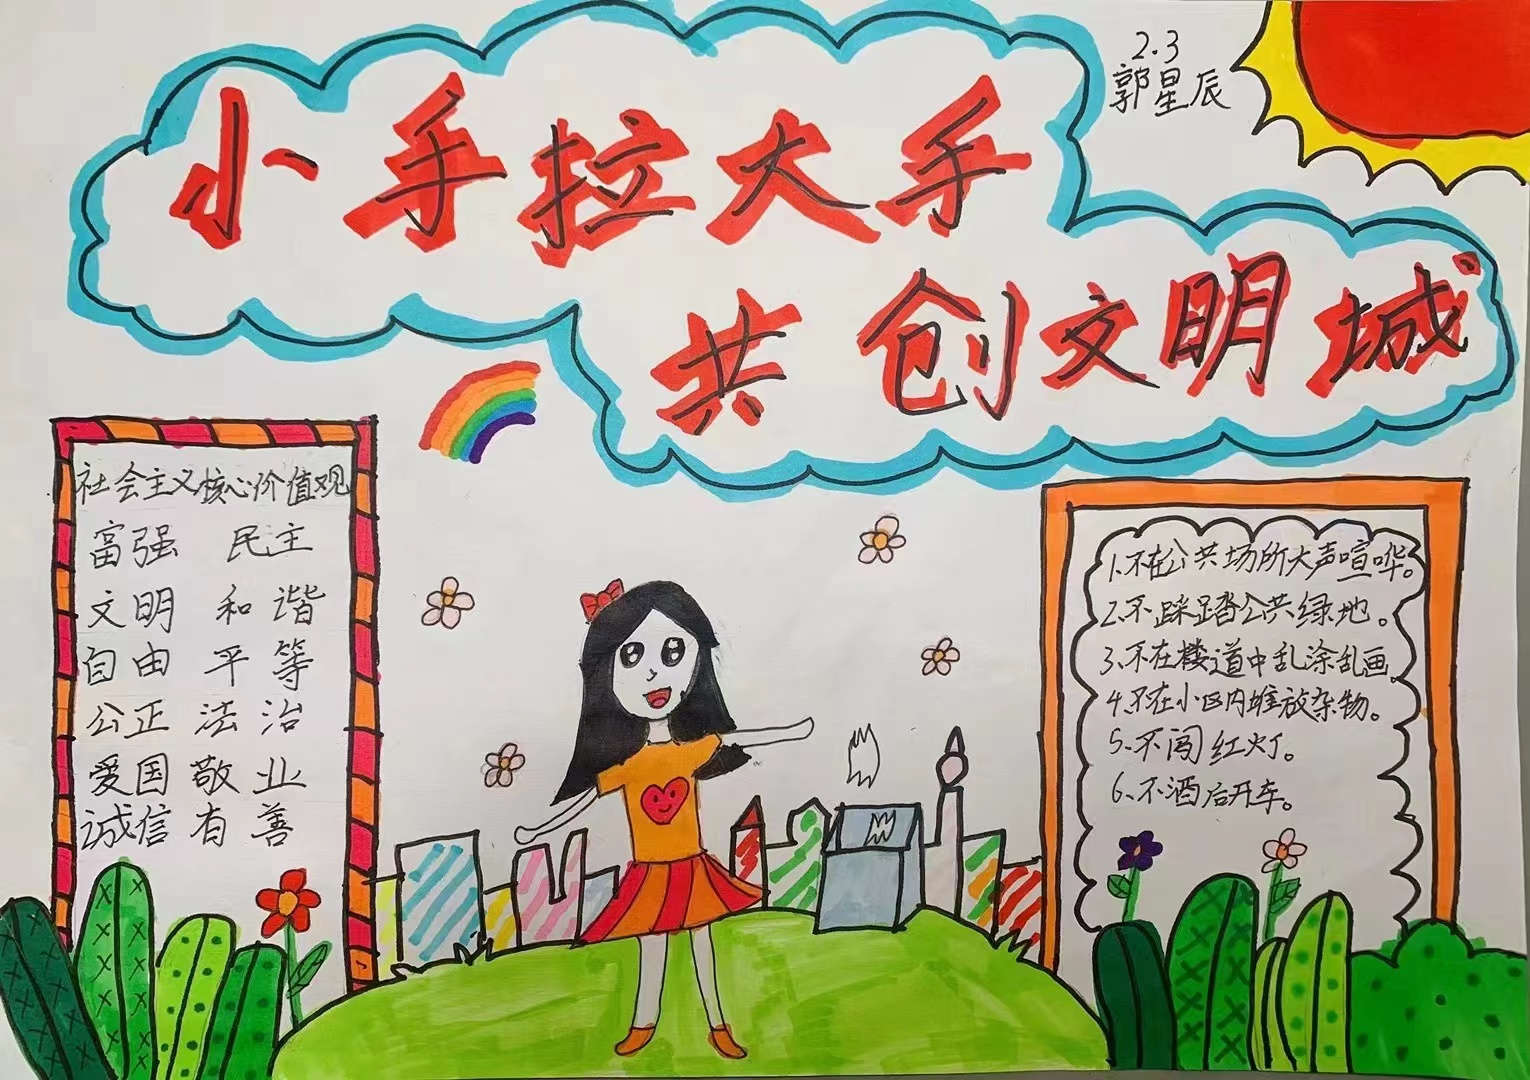 2.3
郭星辰
小手拉大手
共创文明城
社会主义核心价值观
富强 民主
文明 和谐
自由 平等
公正 法治
爱国 敬业
诚信 有善
1、不在公共场所大声喧哗。
2、不踩踏公共绿地。
3、不在楼道中乱涂乱画。
4、不在小区内堆放杂物。
5、不闯红灯。
6、不酒后开车。